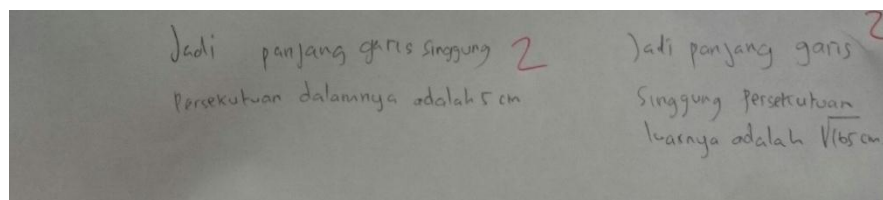 Jadi panjang garis singgung 2
Persekutuan dalamnya adalah 5 cm
Jadi panjang garis 2
Singgung Persekutuan
luarnya adalah √165 cm